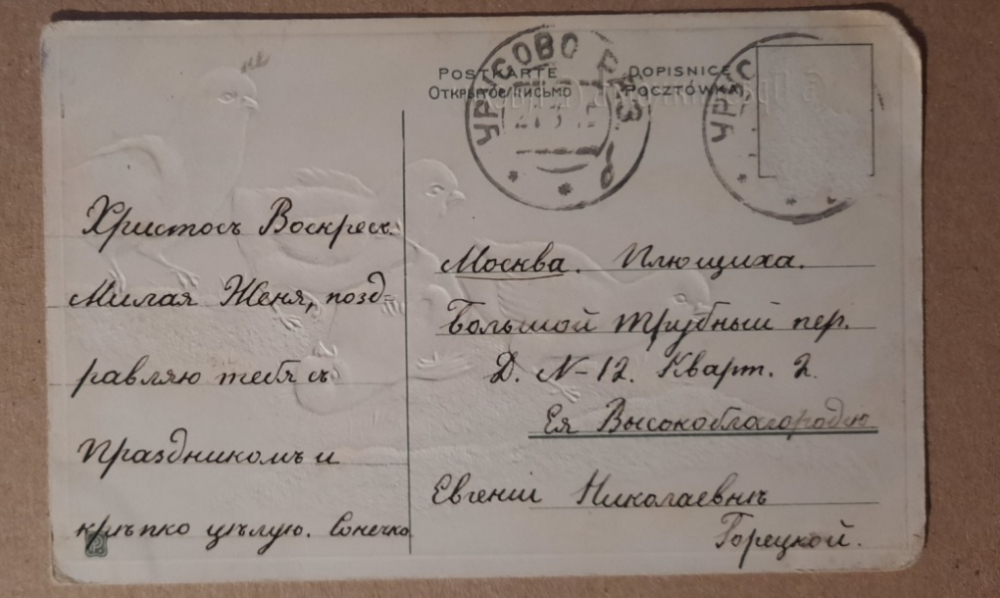 POSTKARTE DOPISNICE
ОТКРЫТОЕ ПИСЬМО POCZTÓWKA
УРУСОВО РЯЗ
УРУС
Христосъ Воскресъ.
Милая Женя, позд-
равляю тебя съ
Праздникомъ и
крѣпко цѣлую. Сонечка
Москва. Плющиха.
Большой Трубный пер.
Д. N-12. Кварт. 2.
Ея Высокоблагородію
Евгеніи Николаевнѣ
Горецкой.